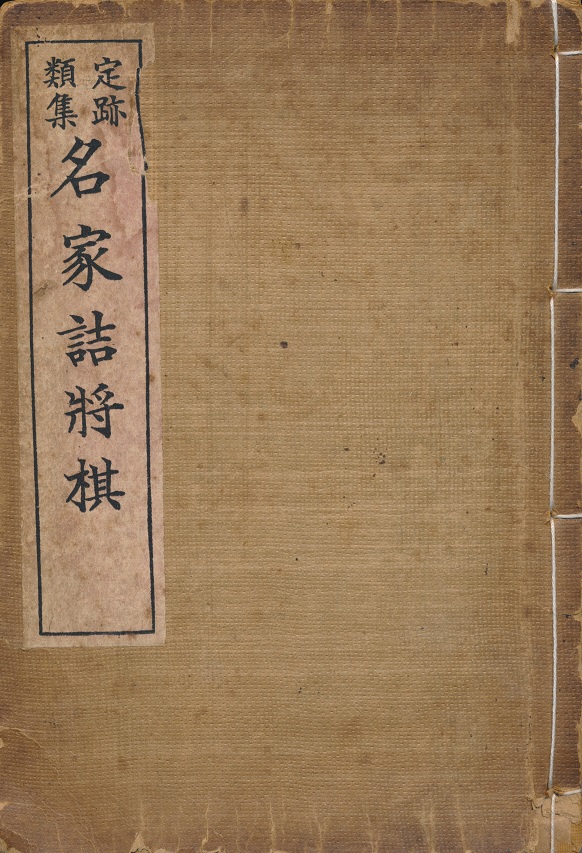 定跡
類集
名家詰將棋